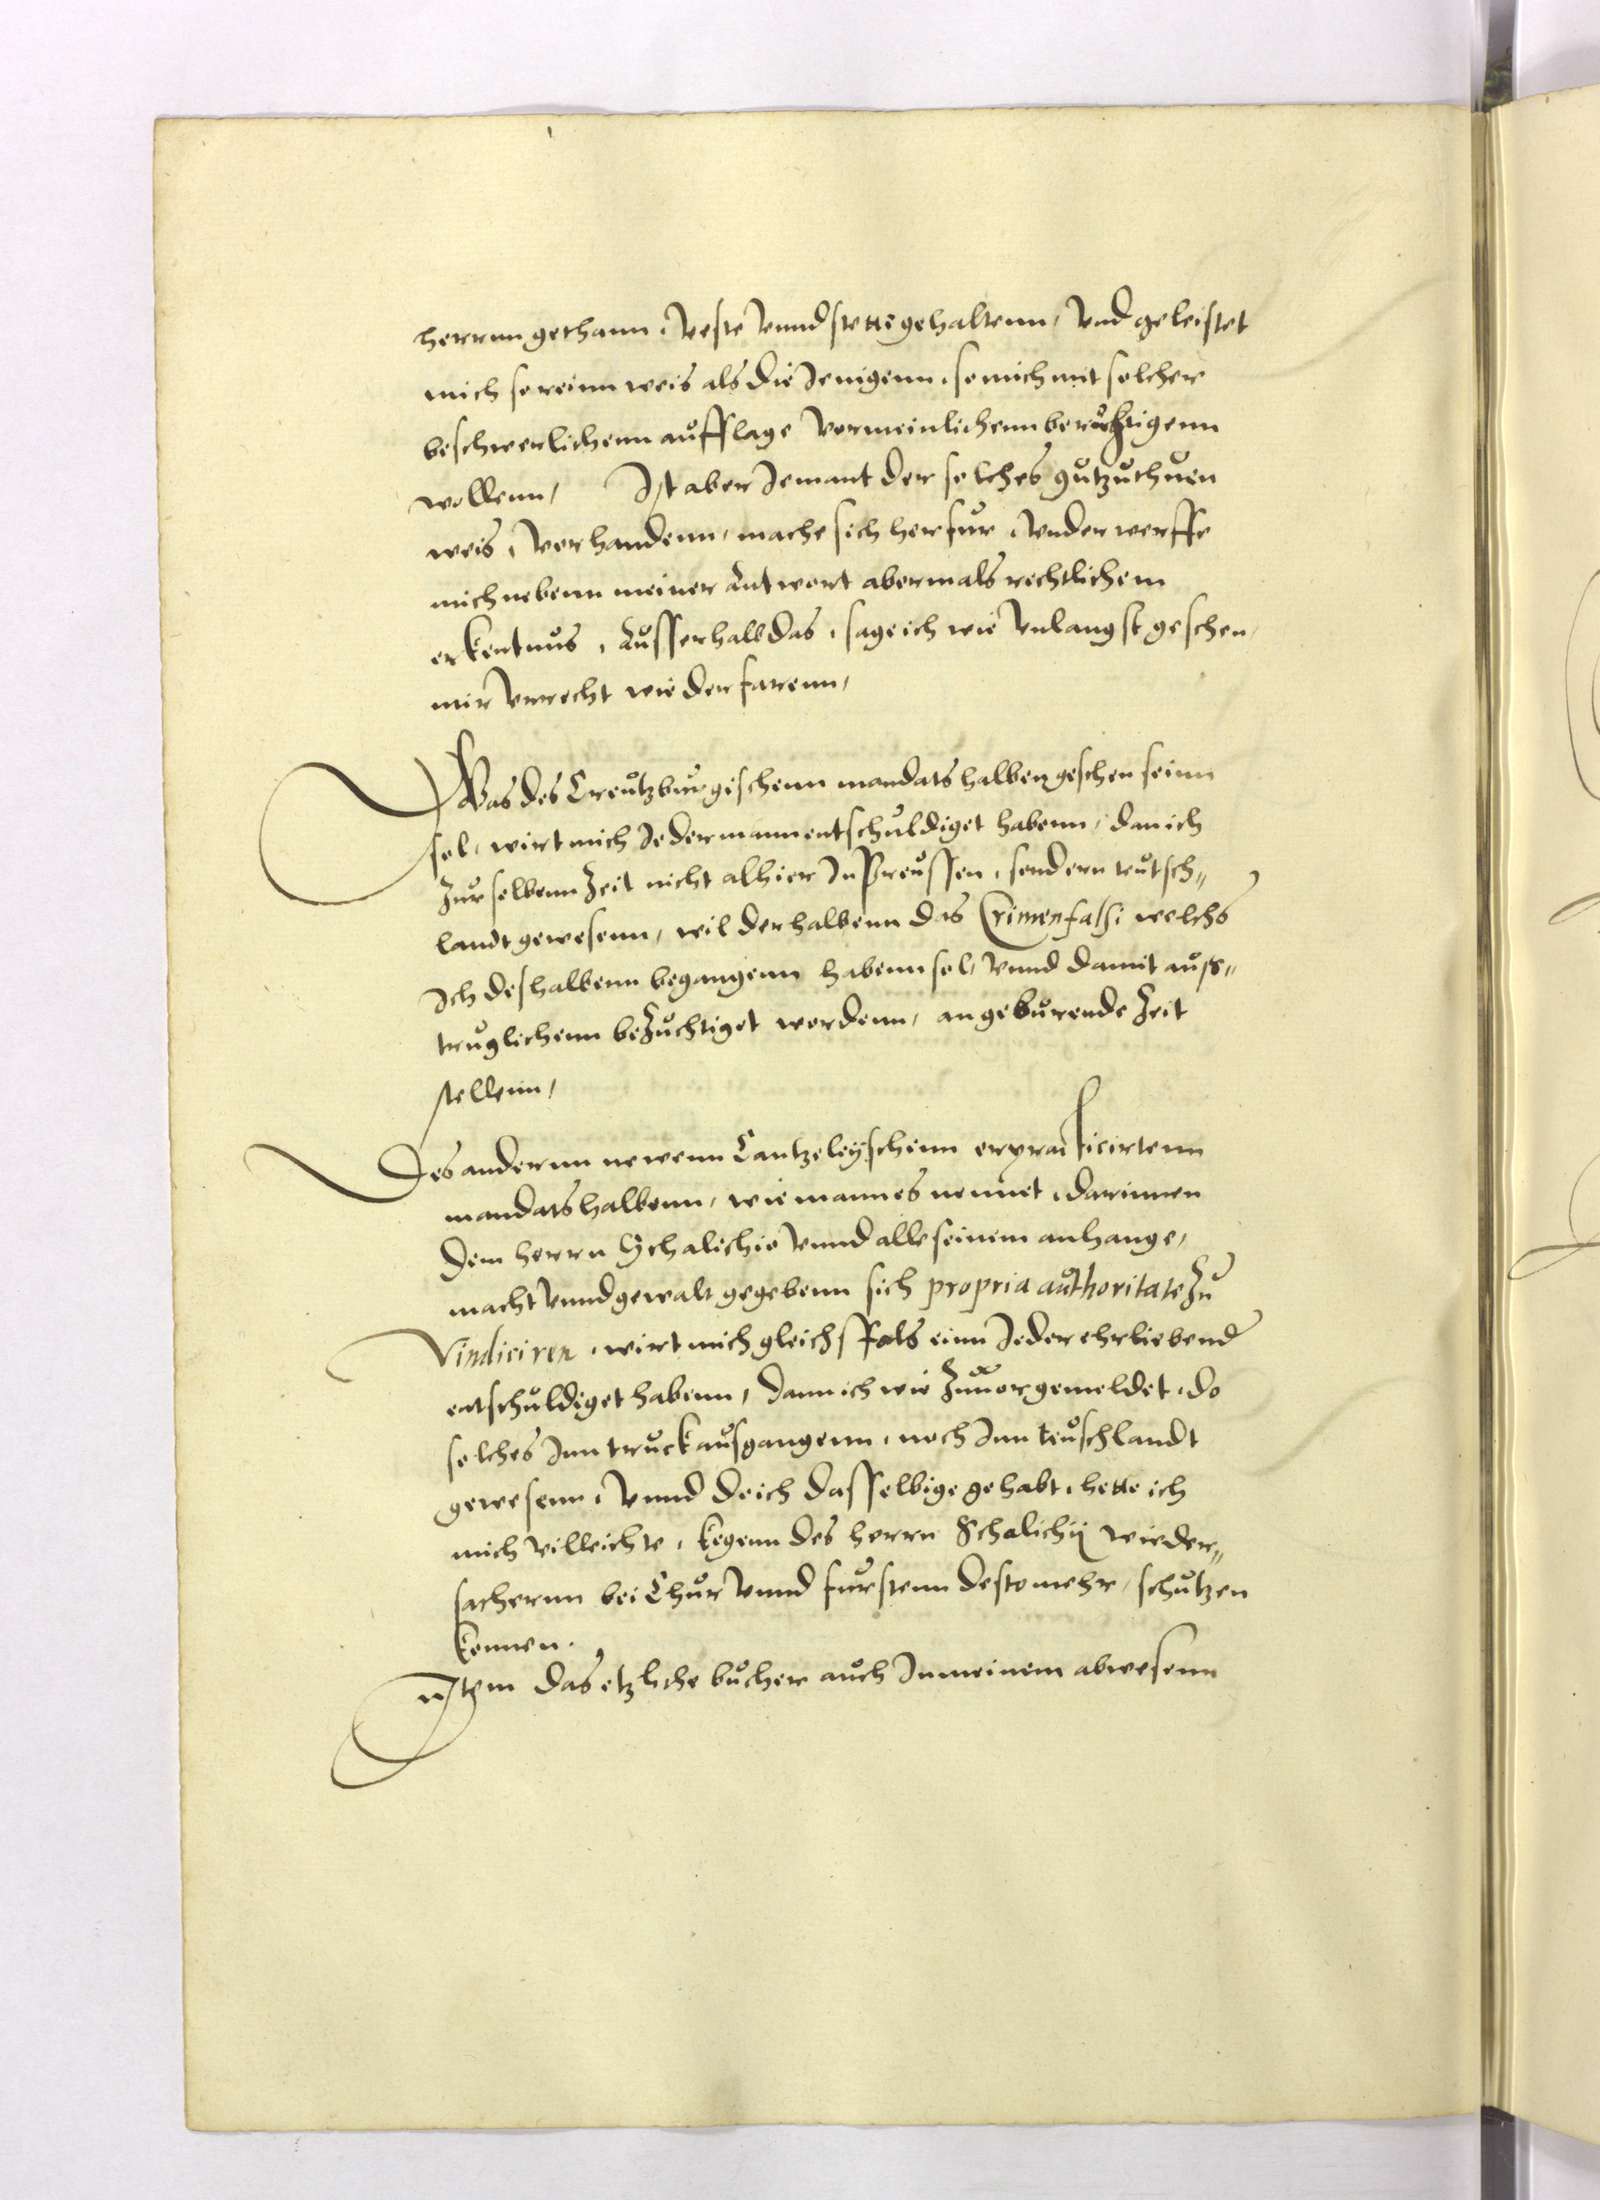 herrnn gethann, veste vnnd stette gehaltenn, vnd geleistet
mich so reinn weis als die Jenigenn, so mich mit solcher
beschwerlichenn aufflage vermeinlichenn beruchtigenn
wollenn, Ist aber Jemant der solches gutzuthuen
weis, verhandenn, mache sich herfur, vnderwerffe
mich nebenn meiner Antwort abermals rechtlichem
erkentnus, Ausserhalb das, sage ich wie vnlangst geschen,
mir vnrecht wiederfarenn,
Was des Creutzburgischenn mandats halben geschen seinn
sol, wirt mich Jedermann entschuldiget habenn, dan ich
zur selbenn Zeit nicht alhier In Preussen, sondern teutsch„
landt gewesenn, wil derhalbenn das Crimen falsi welchs
Ich deshalbenn begangenn habenn sol, vnnd damit auss„
truglichenn bezuchtiget werdenn, an geburende Zeit
stellenn,
Des andernn newenn Cantzeleyschenn erpracticirtenn
mandats halbenn, wie mann es nennet, darinnen
dem herrn Schalichio vnnd alle seinem anhange,
macht vnnd gewalt gegebenn sich propria authoritate zu
Vindiciren, wirt mich gleichsfals einn Jeder ehrliebend
entschuldiget habenn, dann ich wie zuuor gemeldet, do
solches Inn truck ausgangenn, noch Inn teuschlandt
gewesenn, vnnd do ich dasselbige gehabt, hette ich
mich villeichte, kegenn des herrn Schalichij wieder„
sachernn bei Chur vnnd furstenn desto mehr, schutzen
konnen.
Item das etzliche bucher auch In meinem abwesenn